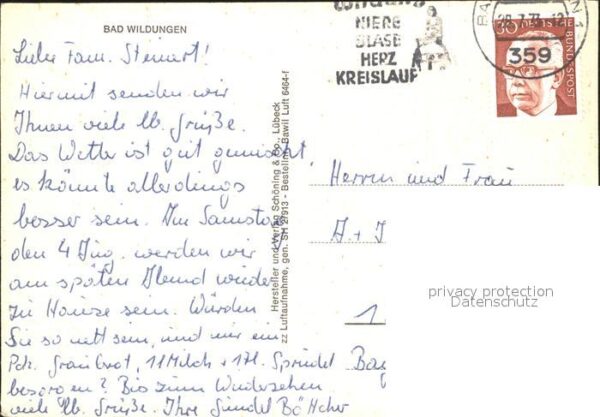 BAD WILDUNGEN
Liebe Fam. Steinert!
Hiermit senden wir
Ihnen viele lb. Grüße.
Das Wetter ist gut gemischt
es könnte allerdings
besser sein. Am Samstag
den 4 Aug. werden wir
am späten Abend wieder
zu Hause sein. Würden
Sie so nett sein, und mir ein
Pck. Graubrot, 1 l Milch + 1 Fl. Sprudel
besorgen? Bis zum Wiedersehen
viele lb. Grüße. Ihre
Hersteller und Verlag Schöning & Co., Lübeck
zz Luftaufnahme, gen. SH 27913 - Bestellnr. Bawil Luft 6464-f
NIERE
BLASE
HERZ
KREISLAUF
359
30
DEUTSCHE
BUNDESPOST
Herrn und Frau
1
privacy protection
Datenschutz